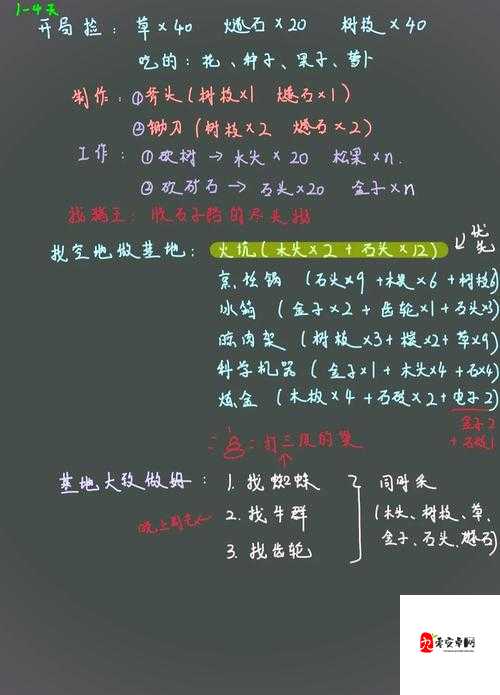 1-4天
开局捡: 草×40 燧石×20 树枝×40
吃的: 花、种子、果子、萝卜
制作: ①斧头(树枝×1 燧石×1)
②锄刀(树枝×2 燧石×2)
工作: ①砍树→木头×20 松果×n.
②砍矿石→石头×20 金子×n
找猪王: 收石子路的尽头
找空地做基地: 火坑(木头×2+石头×12) 优先
烹饪锅(石头×9+木炭×6+树枝6)
冰箱(金子×2+齿轮×1+石头×3)
晾肉架(树枝×3+炭×2+草×9)
科学机器(金子×1+木头×4+石×4)
炼金(木板×4+石砖×2+电子2)
金子2
+石砖1
打三尺的巢
基地大致做好: 1.找蜘蛛
2.找牛群
3.找齿轮
晚上
同时采
(木头、树枝、草、
金子、石头、燧石)
零安卓网